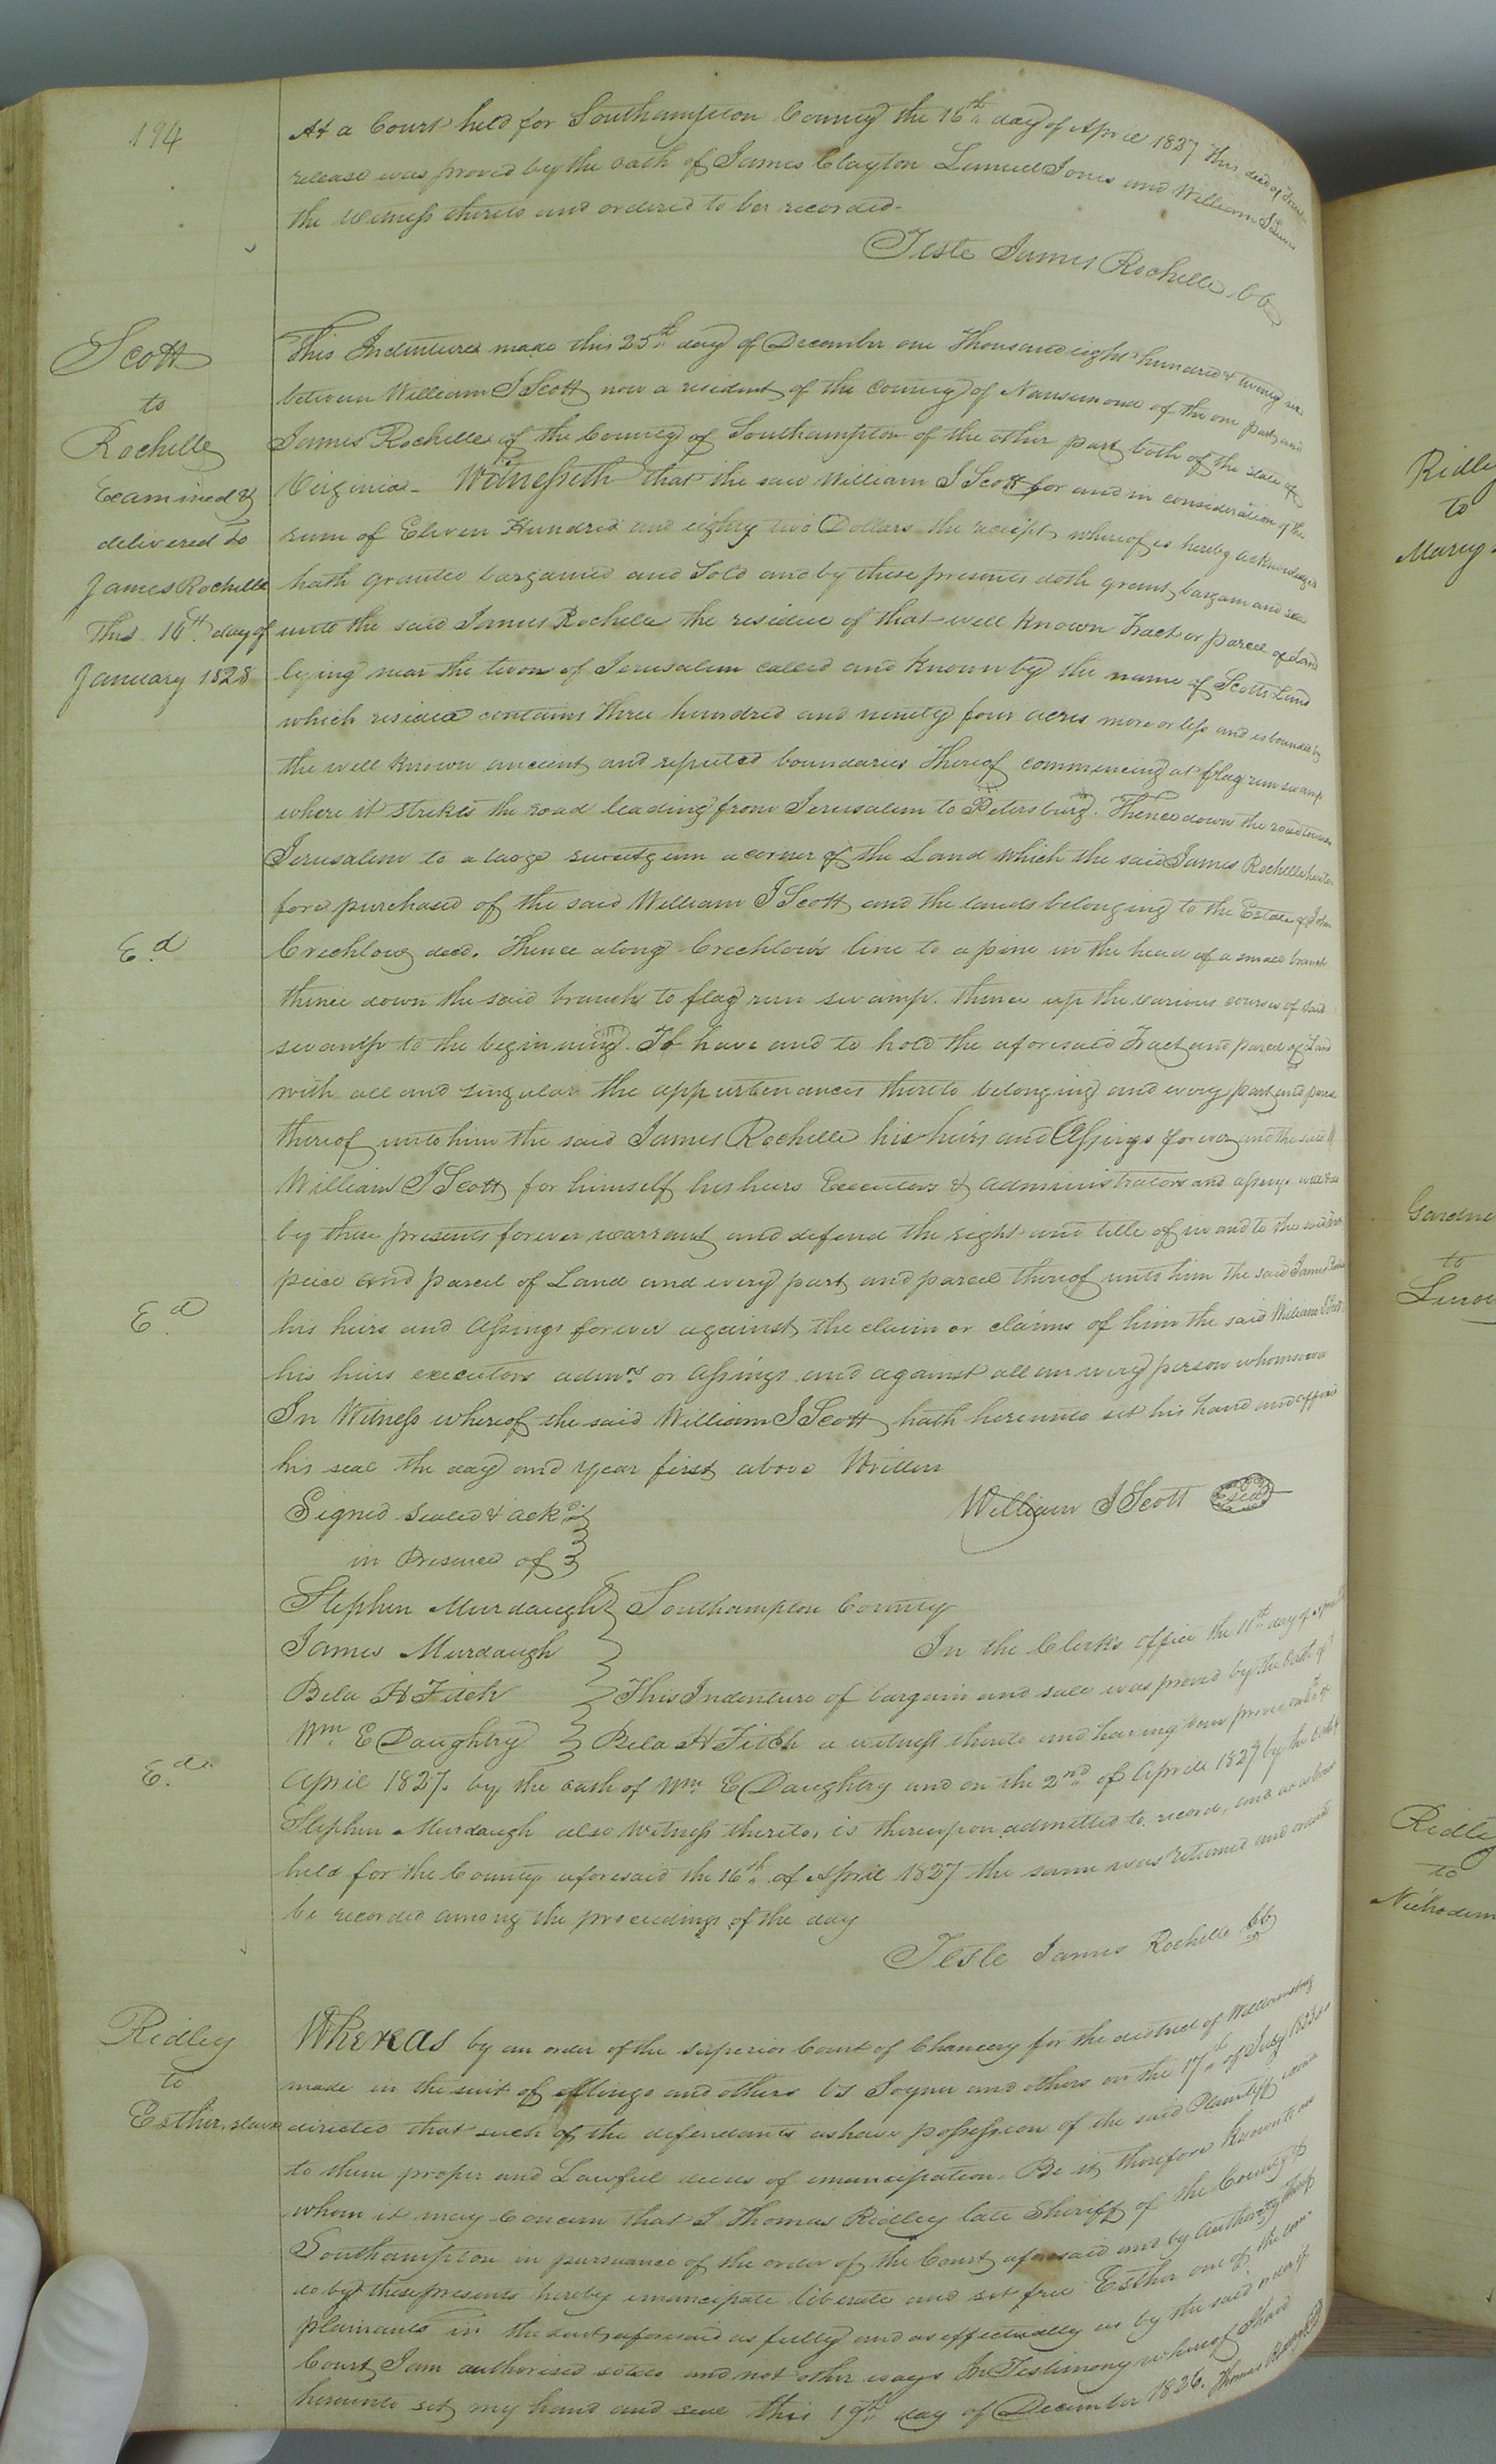 194
At a Court held for Southampton County the 16th day of April 1827 This deed of
release was proved by the oath of James Clayton Lemuel Jones and William
the witness thereto and ordered to be recorded-
Teste James Rochelle CC
Scott
to
Rochelle
Examined &
delivered to
James Rochelle
This 16th day of
January 1828
This Indenture made this 25th day of December one Thousand eight hundred & twenty six
between William J Scott now a resident of the County of Nansemond of the one part and
James Rochelle of the County of Southampton of the other part both of the state of
Virginia- Witnesseth that the said William J Scott for and in consideration of the
sum of Eleven Hundred and eighty two Dollars the receipt whereof is hereby acknowledged
hath granted bargained and Sold and by these presents doth grant bargain and sell
unto the said James Rochelle the residue of that well known Tract or parcel of Land
lying near the town of Jerusalem called and known by the name of Scotts Land
which residue contains three hundred and ninety four acres more or less and is bounded by
the well known ancient and reputed boundaries Thereof commencing at flag run swamp
where it strikes the road leading from Jerusalem to Petersburg. Thence down the road towards
Jerusalem to a large sweetgum a corner of the Land which the said James Rochelle hereto
fore purchased of the said William J Scott and the lands belonging to the Estate of John
Ed
Crechlow decd. Thence along Crechlow's line to a pine in the head of a small branch
thence down the said branch to flag run swamp. thence up the various courses of said
swamp to the beginning. To have and to hold the aforesaid Tract and parcel of Land
with all and singular the appurtenances thereto belonging and every part and parcel
thereof unto him the said James Rochelle his heirs and Assings forever and the said
William J Scott for himself his heirs Executors & administrators and assings will &
by these presents forever warrant and defend the right and title of in and to the said
peice and parcel of Land and every part and parcel thereof unto him the said James
Ed
his heirs and Assings forever against the claim or claims of him the said William J Scott
his heirs executors admrs or Assings and against all an every person whomsoever
In Witness whereof the said William J Scott hath hereunto set his hand and affixed
his seal the day and year first above Written
William J Scott Seal
Signed Sealed & ackd
in Presence of
Stephen Murdaugh
James Murdaugh
Bela H Fitch
Wm. E Daughtry
Southampton County
In the Clerks office the 11th day of
This Indenture of bargain and sale was proved by the oath of
Bela H Fitch a witness thereto and having been proved
Ed
April 1827. by the oath of Wm E Daughtry and on the 2nd of April 1827 by the oath of
Stephen Murdaugh also Witness thereto, is thereupon admitted to record, and at a Court
held for the County aforesaid the 16th of April 1827 the same was returned and
be recorded among the proceedings of the day
Teste James Rochelle CC
Ridley
to
Esther, slave
Whereas by an order of the superior Court of Chancery for the district of Williamsburg
made in the suit of and others vs Joyner and others on the 17th of July
directed that such of the defendants as have possession of the said Plaintiff
to them proper and Lawful deeds of emancipation. Be it therefore known to
whom it may Concern that I Thomas Ridley late Sheriff of the County of
Southampton in pursuance of the order of the Court aforesaid and by Authority thereof
do by these presents hereby emancipate liberate and set free Esther one of the com-
plainants in the suit aforesaid as fully and as effectually as by the said order of
Court I am authorised so to do and not other ways In Testimony whereof I have
hereunto set my hand and seal this 19th day of December 1826. Thomas Ridley
Ridley
to
Mary
Gardne
to
Ridley
to
Nichodem